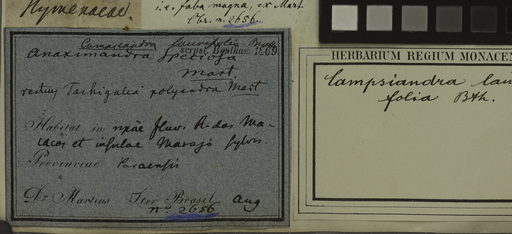 Hymenaeae.
i.e. faba magna, ex Mart.
Obs. n. 2656.
Campsiandra laurifolia Bth
scrips. Bentham 1869
Anaximandra speciosa
Mart.
rectius Tachigalea polyandra Mart
Habitat in ripâe fluv. R. das Ma-
cacos et insulae Marajó sylvis
Provinciae Paraensis
Dr Martius Iter Brasil Aug
no 2656
HERBARIUM REGIUM MONACEN
Campsiandra lau
folia Bth.